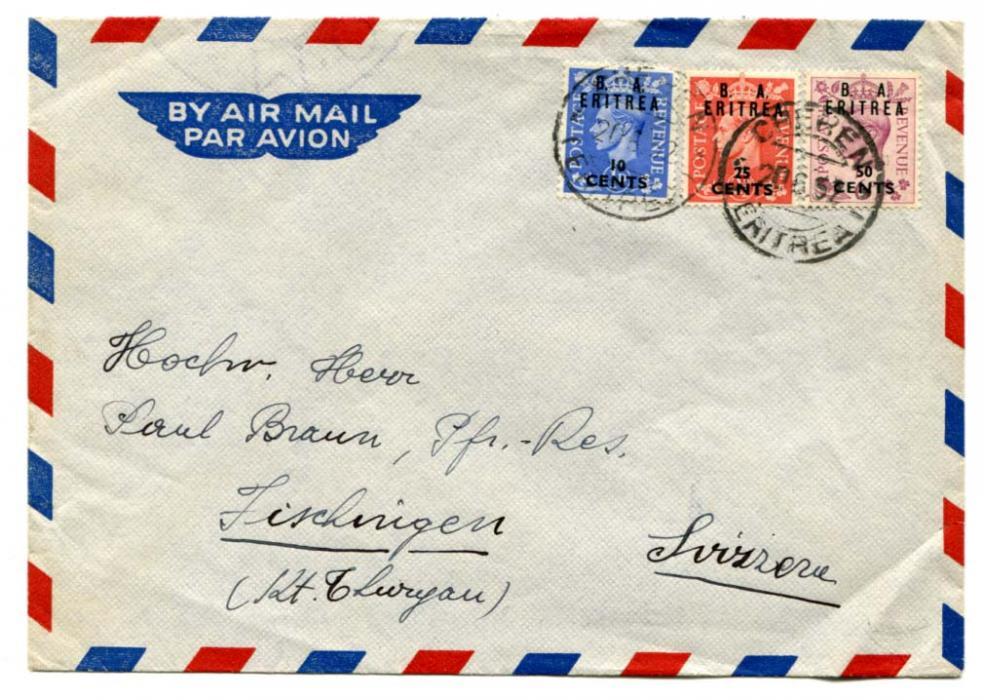 BY AIR MAIL
PAR AVION
B. A.
ERITREA
POSTAGE REVENUE
10
CENTS
B. A.
ERITREA
POSTAGE REVENUE
25
CENTS
B. A.
ERITREA
REVENUE
50
CENTS
CHEREN
20 6 52
ERITREA
Hochw. Herr
Paul Braun, Pfr.-Res.
Fischingen
(Kt. Thurgau)
Svizzera